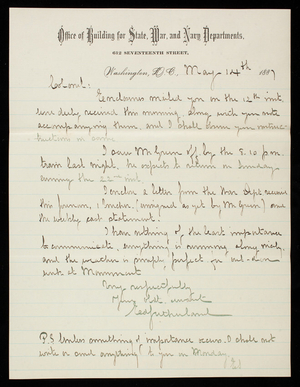 Office of Building for State, War, and Navy Departments,
612 SEVENTEENTH STREET,
Washington, D.C. May 14th 1887
Colonel:
Enclosures mailed you on the 12th inst.
were duly received this morning, along with your note
accompanying them, and I shall have your instructions
in mind.
I saw Mr Gunn off by the 8.10 p.m.
train last night, he expects to return on Sunday
evening the 22nd inst.
I enclose a letter from the War Dept received
this forenoon, 1 voucher, (unsigned as yet by Mr Gunn) and
the weekly cost statement.
I have nothing of the least importance
to communicate, everything is running along nicely
and the weather is simply perfect for out-door
work at Monument
Very respectfully
Your obt. servant
Ed Sutherland
P.S. Unless something of importance occurs I shall not
write or send anything to you on Monday
Ed